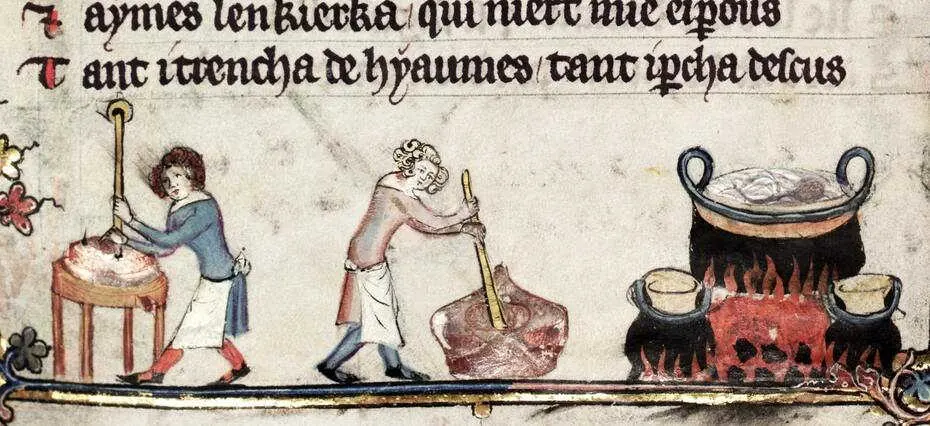 J aymes lenkierka / qui niert mie esꝑous
T ant i trencha de hyaumes / tant iꝑcha descus